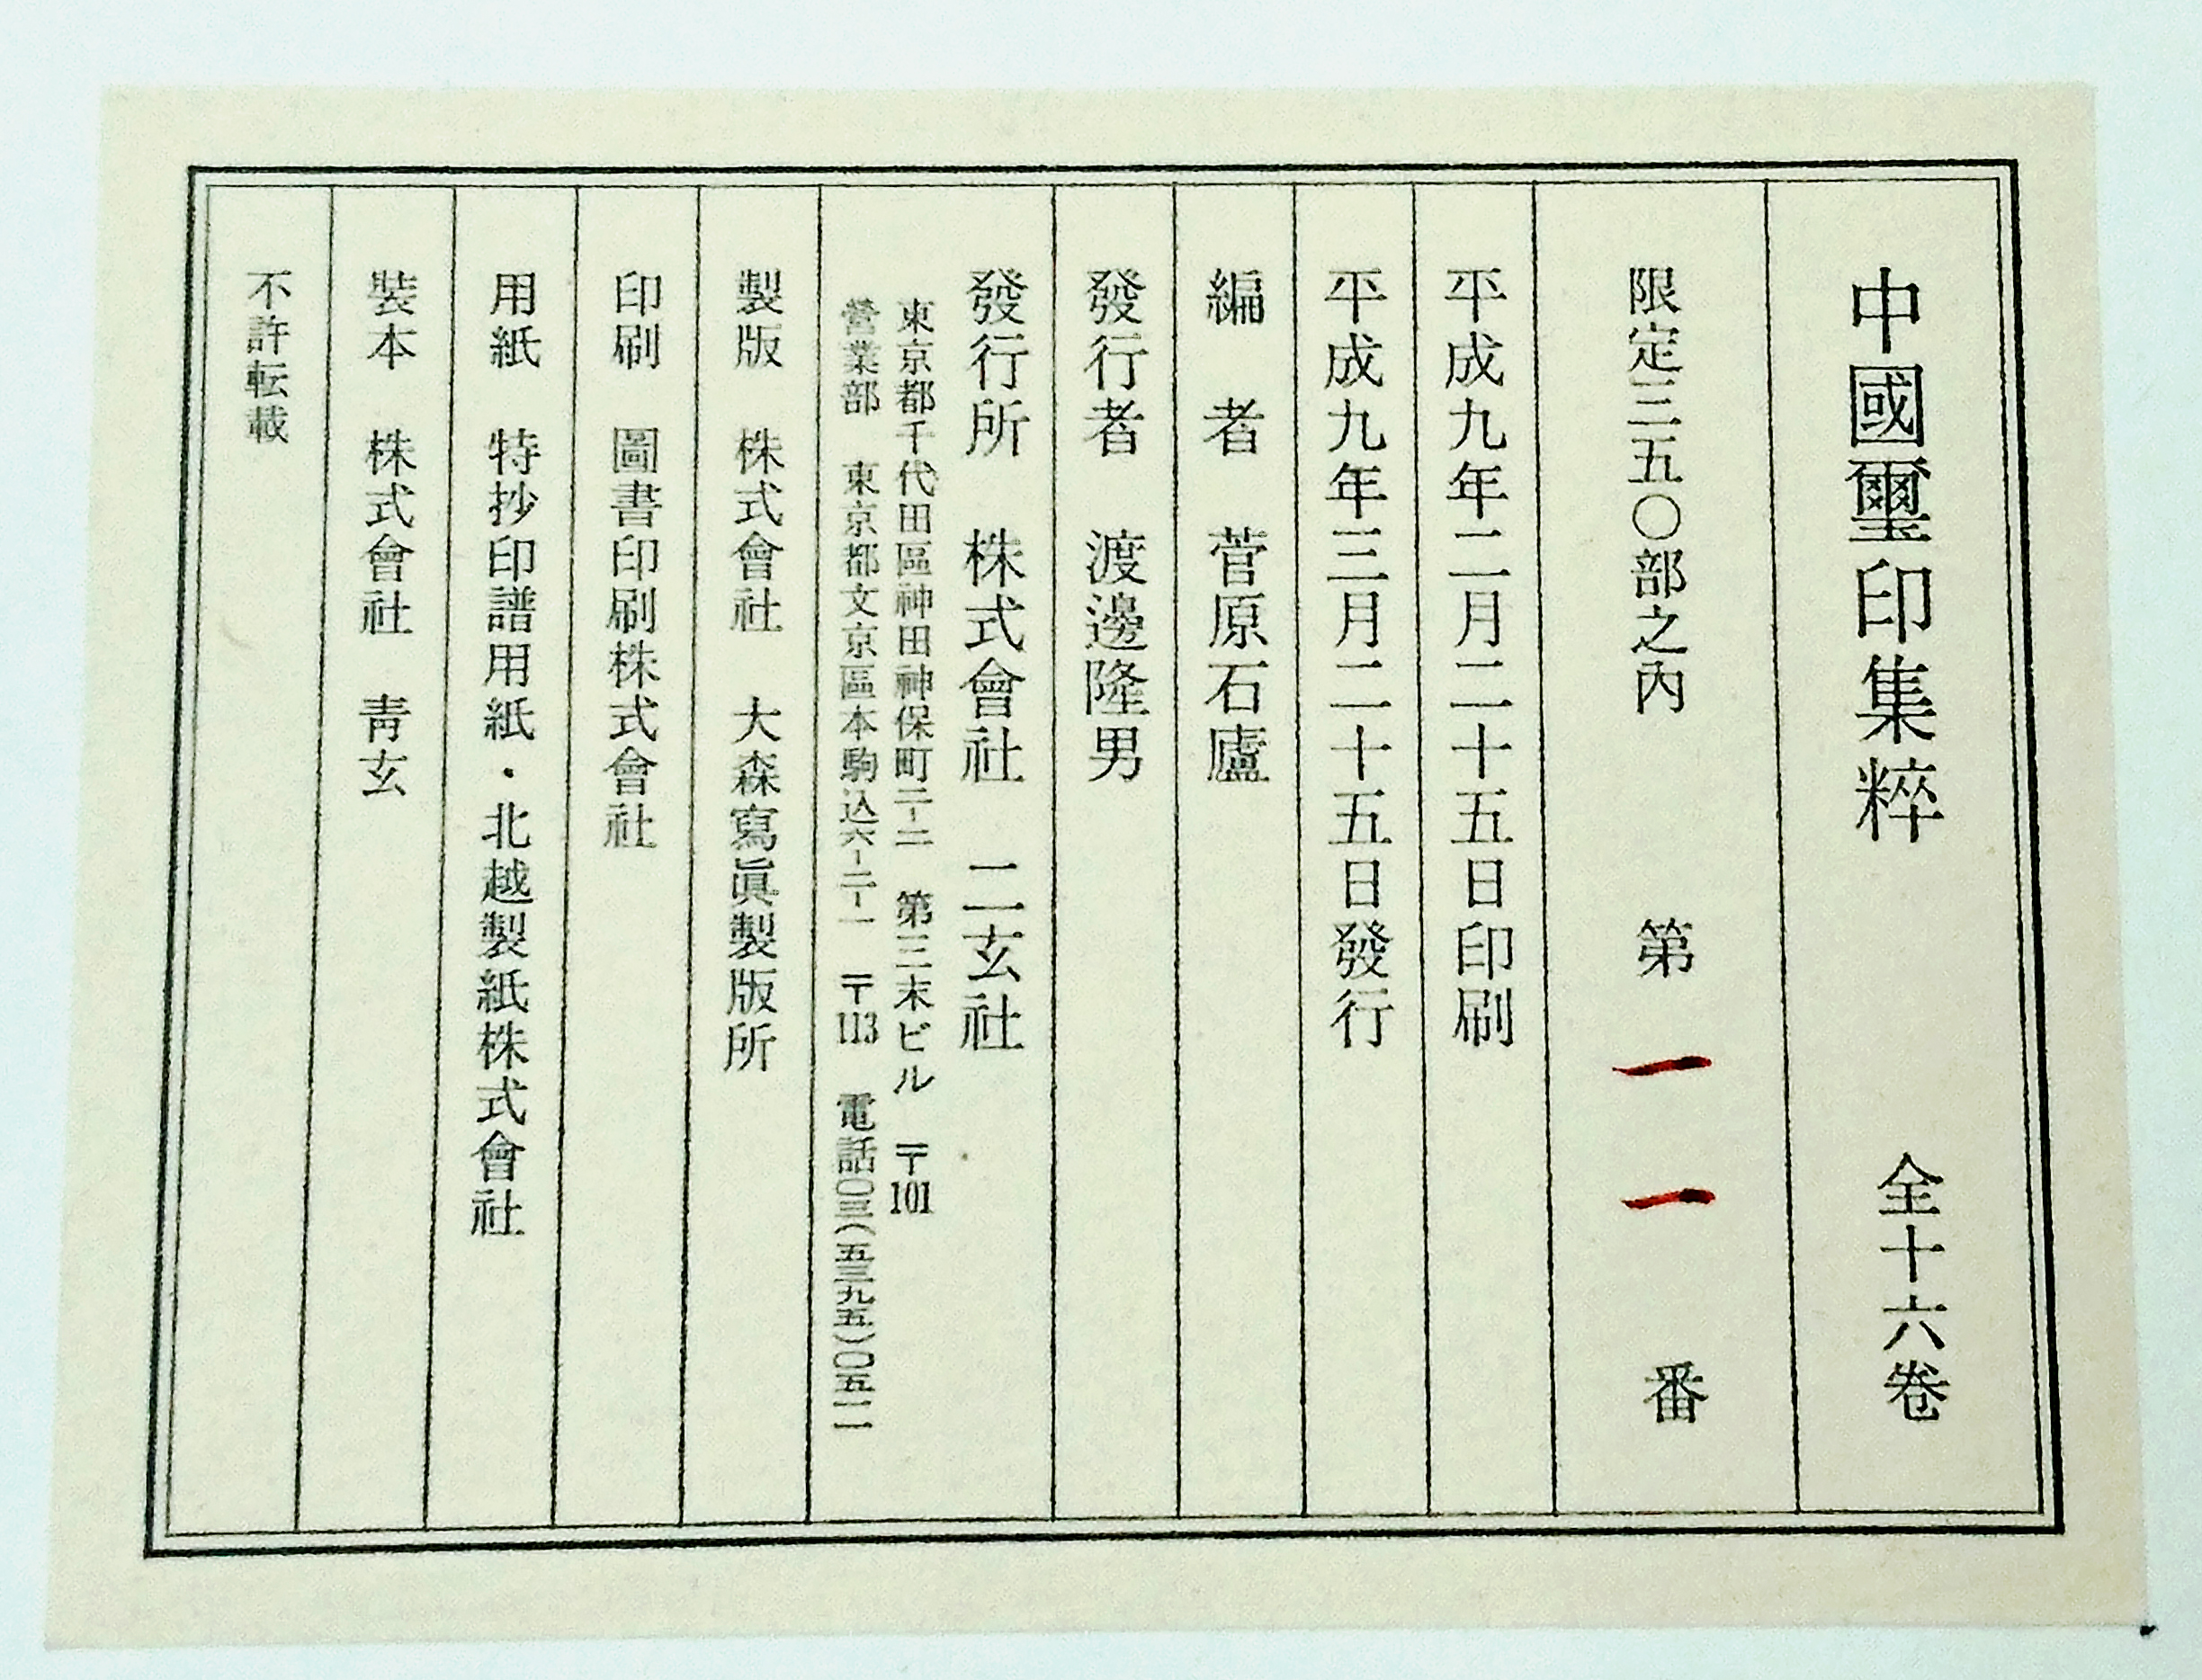 中國璽印集粹　全十六卷
限定三五〇部之內　第一一番
平成九年二月二十五日印刷
平成九年三月二十五日發行
編者　菅原石廬
發行者　渡邊隆男
發行所　株式會社　二玄社
東京都千代田區神田神保町二-二　第三末ビル　〒101
營業部　東京都文京區本駒込六-二-一　〒113　電話〇三(五三九五)〇五一一
製版　株式會社　大森寫眞製版所
印刷　圖書印刷株式會社
用紙　特抄印譜用紙・北越製紙株式會社
裝本　株式會社　青玄
不許転載